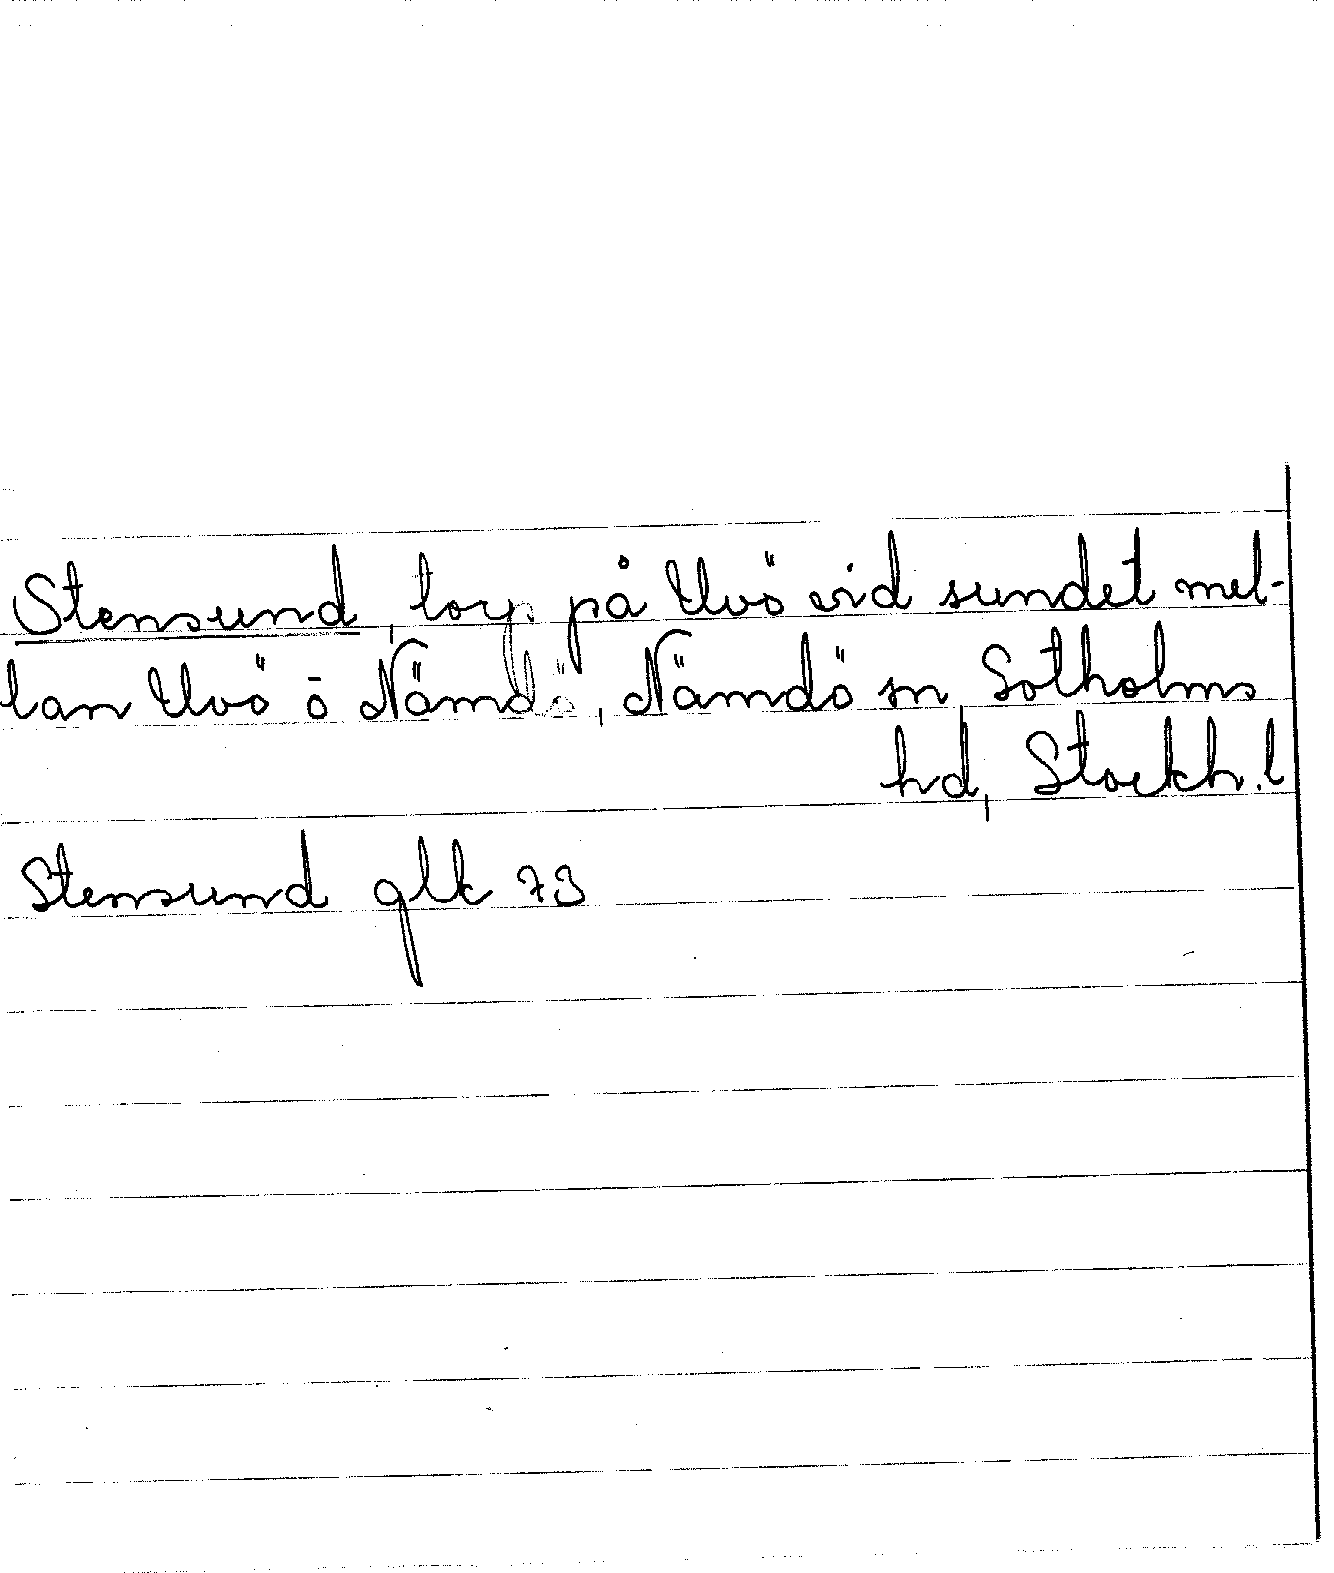 Stensund, torp på Uvö vid sundet mel-
lan Uvö o Nämdö, Nämdö sn, Sotholms
hd, Stockh. l
Stensund glk 73